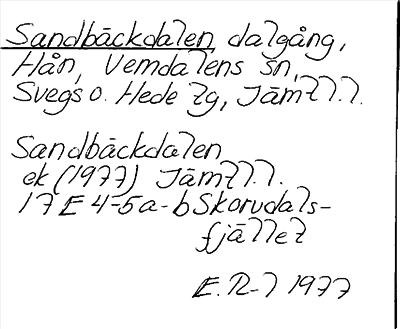 Sandbäckdalen, dalgång,
Hån, Vemdalens sn,
Svegs o. Hede tg, Jämtl.l.
Sandbäckdalen
ek (1977) Jämtl.l.
17 E 4-5 a-b Skorvdals-
fjället
E.R-l 1977